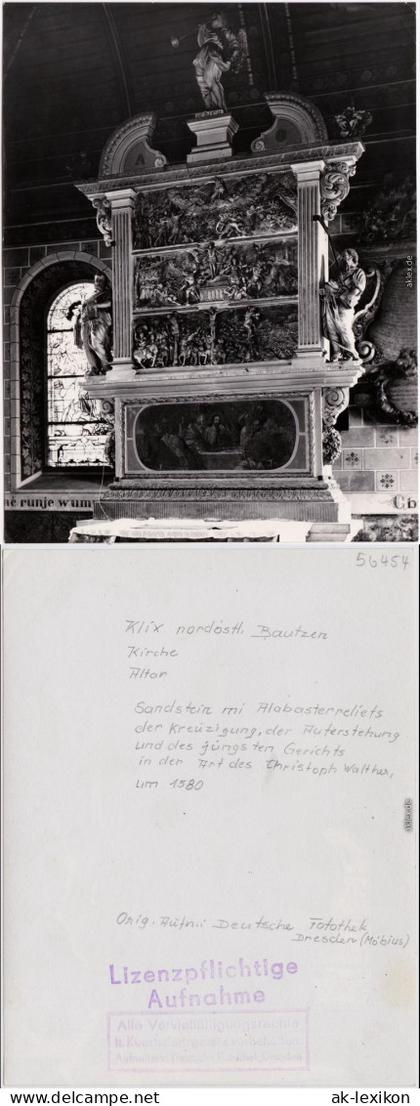 né runje wum
Ch
aklex.de
56454
Klix nordöstl. Bautzen
Kirche
Altar
Sandstein mi Alabasterreliefs
der Kreuzigung, der Auferstehung
und des jüngsten Gerichts
in der Art des Christoph Walther,
um 1580
aklex.de
Orig. Aufn.: Deutsche Fotothek
Dresden (Möbius)
Lizenzpflichtige
Aufnahme
Alle Vervielfältigungsrechte
Deutsche Fotothek Dresden
www.delcampe.net
ak-lexikon